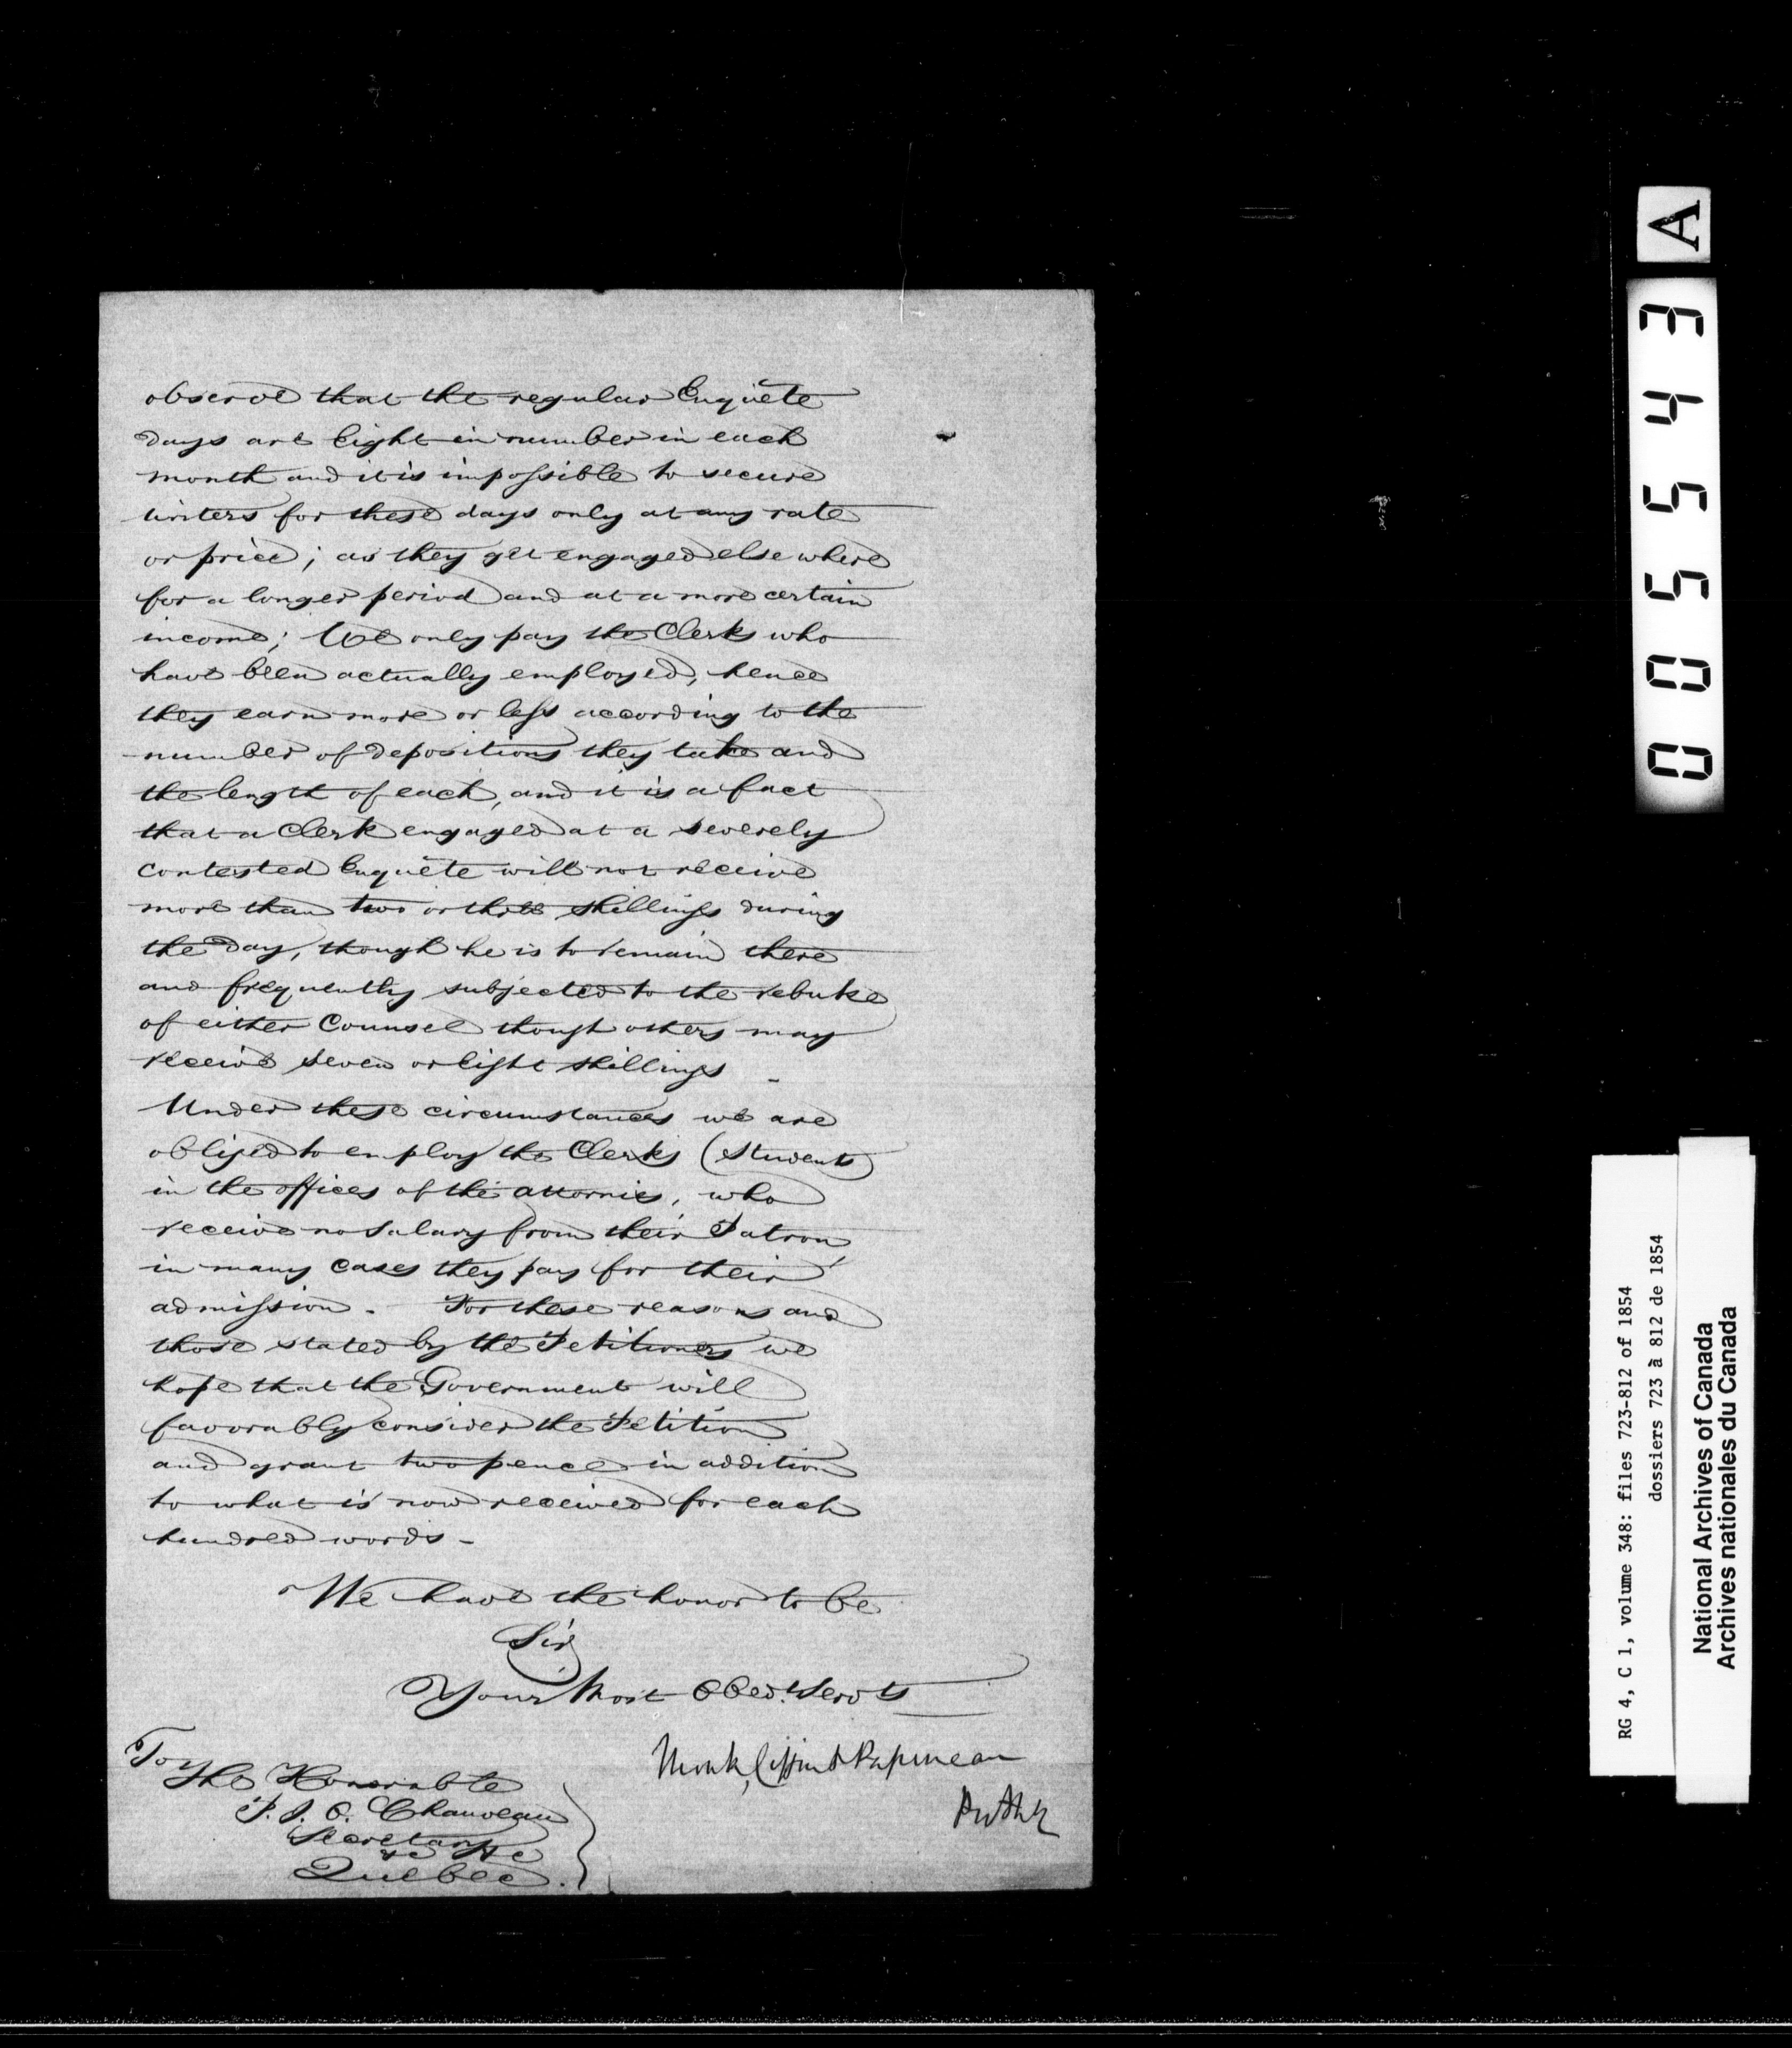 observe that the regular Enquête
days are Eight in number in each
month and it is impossible to secure
writers for these days only at any rate
or price; as they get engaged else where
for a longer period and at a more certain
income; We only pay the Clerks who
have been actually employed, hence
they earn more or less according to the
number of depositions they take and
the length of each, and it is a fact
that a Clerk engaged at a severely
contested Enquête will not receive
more than two or three shillings during
the day, though he is to remain there
and frequently subjected to the rebuke
of either Counsel though others may
receive seven or Eight shillings -
Under these circumstances we are
obliged to employ the Clerks (Students)
in the offices of the attornies, who
receive no salary from their Patron,
in many cases they pay for their
admission. For these reasons and
those stated by the Petitioners we
hope that the Government will
favorably consider the Petition
and grant two pence in addition
to what is now received for each
hundred words -
We have the honor to be
Sir
Your Most Obedt. Servts
Monk, Coffin & Papineau
To
The Honorable
P. J. O. Chauveau
Secretary
&c &c
Quebec.
A
005543
RG 4, C 1, volume 348: files 723-812 of 1854
dossiers 723 à 812 de 1854
National Archives of Canada
Archives nationales du Canada